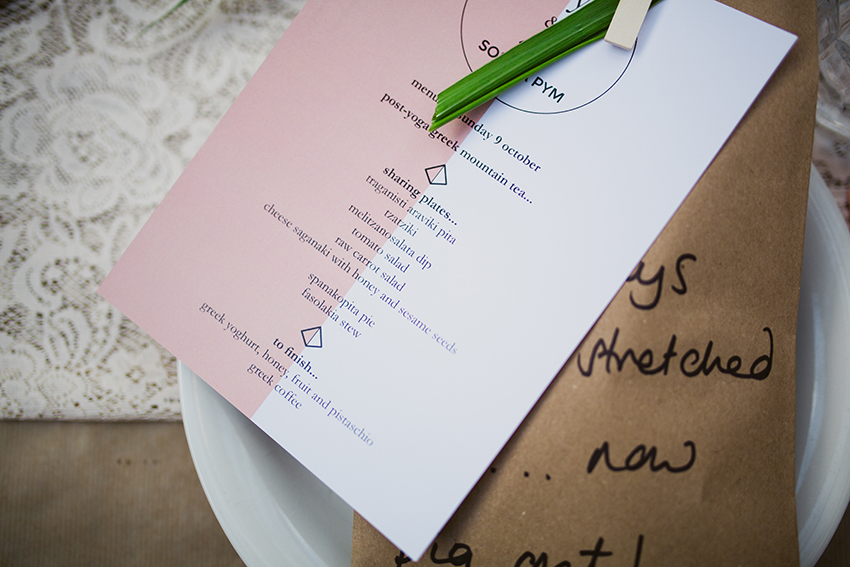 &
SO PYM
menu sunday 9 october
post-yoga greek mountain tea...
sharing plates...
traganisti araviki pita
tzatziki
melitzanosalata dip
tomato salad
raw carrot salad
cheese saganaki with honey and sesame seeds
spanakopita pie
fasolakia stew
to finish...
greek yoghurt, honey, fruit and pistaschio
greek coffee
stretched
... now